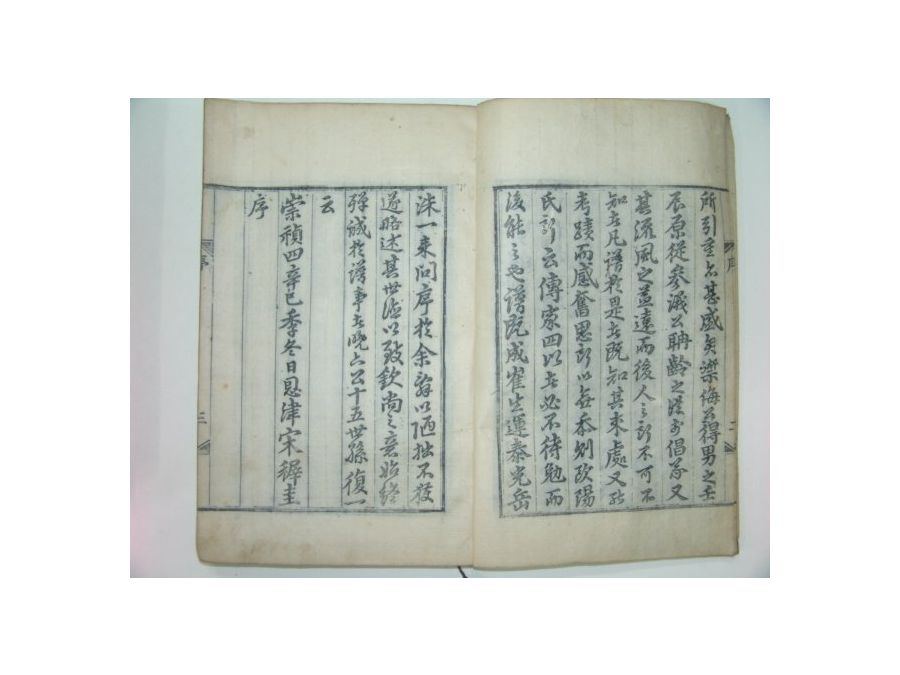 所引重亦甚盛矣樂悔公得男之
辰原從參議公聃齡之後於倡亦又
其流風之益遠而後人之所不可不
知者凡譜於是者既知其來處又能
考蹟而感奮思所以無忝則歐陽
氏所云傳家四以者必不待勉而
後能之也譜既成崔生運泰光岳
洙一來問序於余辭以陋拙不獲
遂略述其世德以致欽尚之意始終
殫誠於譜事者曉六公十五世孫復一
云
崇禎四辛巳季冬日恩津宋穉圭
序
序
二
序
三